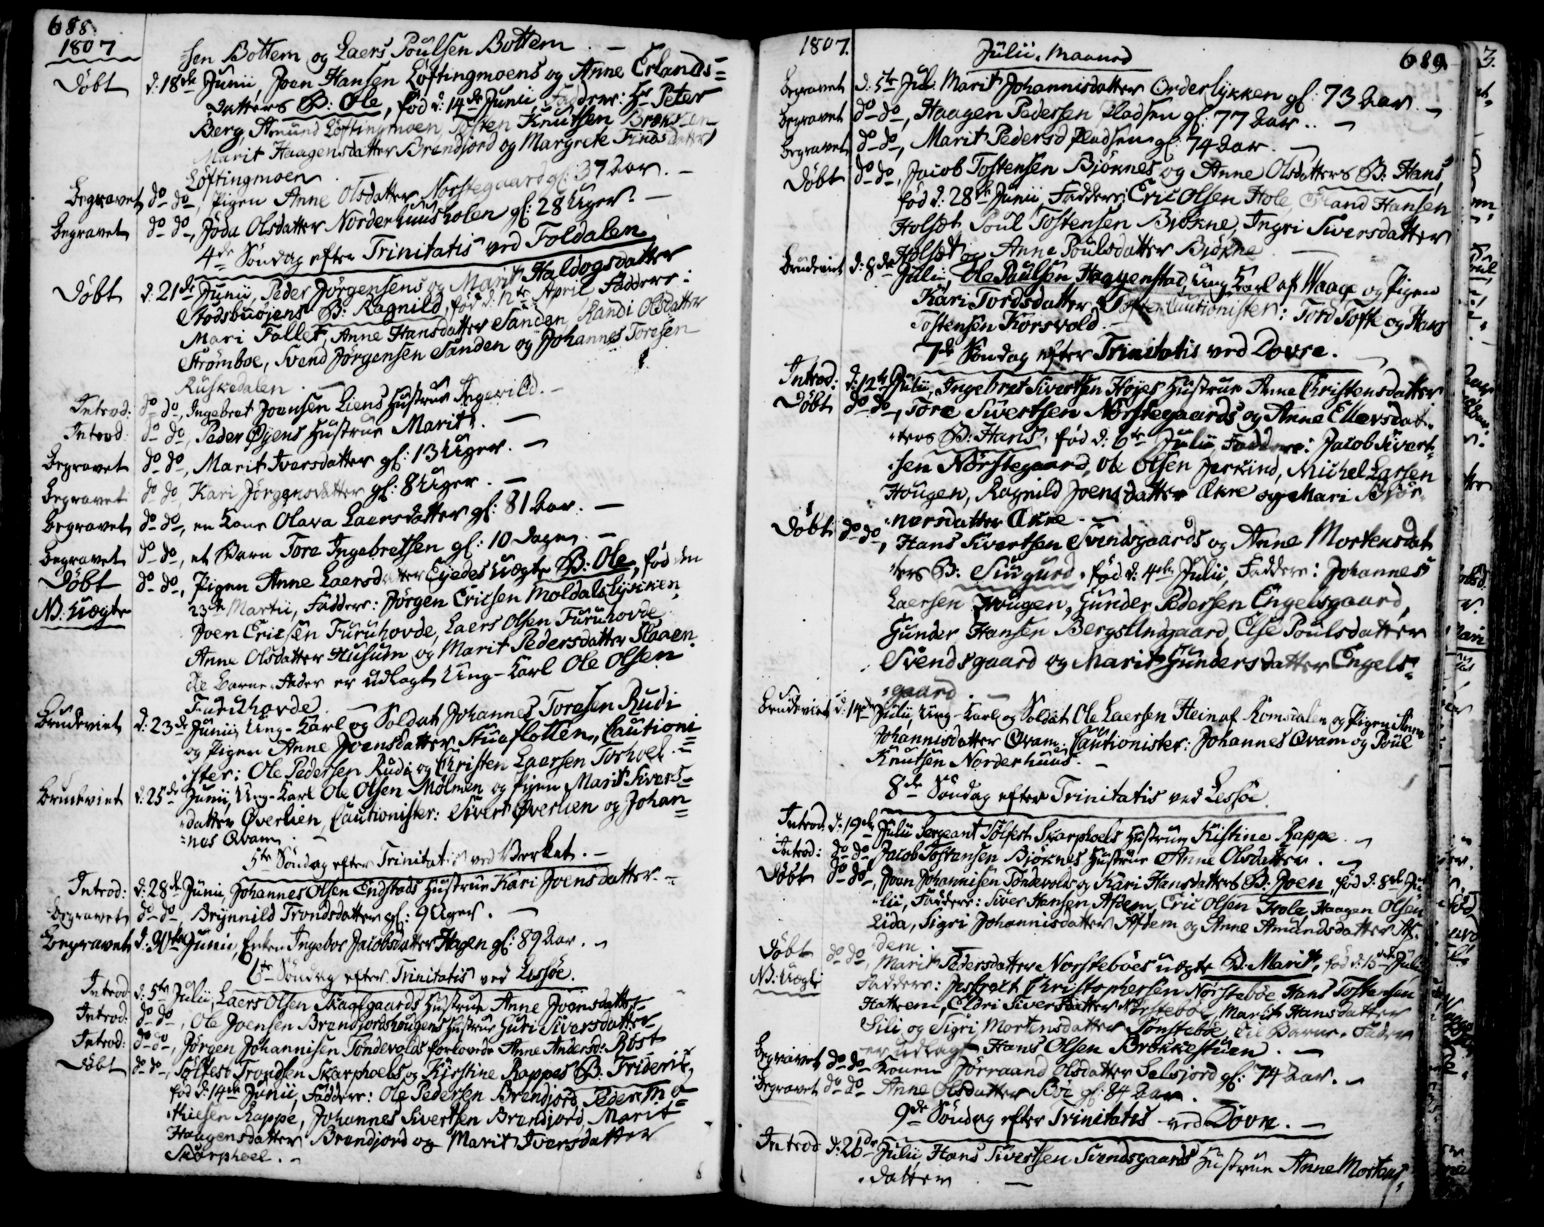 688.
1807
sen Bottem og Laers Poulsen Bottem. —
Døbt d: 18de Junii, Joen Hansen Løftingmoens og Anne Erlands-
datters B: Ole, fød d: 14de Junii, Faddere: Hr Peter
Berg, Amund Løftingmoen, Tosten Knutsen
Marit Haagensdatter Brændjord og Margrete Findsdatter
Løftingmoen
Begravet do do, Pigen Anne Olsdatter Norstegaard gl: 37 Aar. —
Begravet do do, Jøda Olsdatter Norderhuusholen gl: 28 Uger. —
4de Søndag efter Trinitatis ved Foldalen
Døbt d: 21de Junii, Peder Jørgensens og Marit Haldogsdatter
Stodsbuøiens B: Ragnild, fød d: April Faddere:
Mari Follet, Anne Hansdatter Sanden, Randi Olsdatter
Strømboe, Svend Jørgensen Sanden og Johannes Toresen
Ruskedalen. —
Introd: do do, Ingebret Joensen Liens Hustrue Ingevild. —
Introd: do do, Peder Øyens Hustrue Marit. —
Begravet do do, Marit Iversdatter gl: 13 Uger. —
Begravet do do, Kari Jørgensdatter gl: 8 Uger. —
Begravet do do, en Kone Olava Laersdatter gl: 81 Aar. —
Begravet do do, et Barn Tore Ingebretsen gl: 10 Dage. —
Døbt do do, Pigen Anne Laersdatter Eyedes uægte B: Ole, fød den
N.: Uægte 23de Martii, Faddere: Jørgen Ericsen Moldalslykken,
Joen Ericsen Furuhovde, Laers Olsen Furuhovde
Anne Olsdatter Husum og Marit Pedersdatter Slaaen.
til Barne-Fader er udlagt Ung-Karl Ole Olsen
Furuhovde. —
Brudeviet d: 23de Junii, Ung-Karl og Soldat Johannes Toresen Rudi
og Pigen Anne Joensdatter Stueflotten, Cautioni-
ster: Ole Pedersen Rudi og Christen Laersen Torhoel. —
Brudeviet d: 25de Junii, Ung-Karl Ole Olsen Mølmen og Pigen Marit Sivers-
datter Øverlien, Cautionister: Sivert Øverlien og Johan-
nes Qvam. —
5te Søndag efter Trinitatis ved Værket. —
Introd: d: 28de Junii, Johannes Olsen Endstads Hustrue Kari Joensdatter. —
Begravet do do, Brynnild Trondsdatter gl: 9 Uger. —
Begravet d: 30te Junii, Enken Ingebor Jacobsdatter Hagen gl: 89 Aar. —
6te Søndag efter Trinitatis ved Lessøe.
Introd: d: 5te Julii, Laers Olsen Skaelgaards Hustrue Anne Joensdatter
Introd: do do, Ole Joensen Brændjordshougens Hustrue Guri Siversdatter
Introd: do do, Jørgen Johannisen Tøndevolds forlovede Anne Andersd: Bøst
Døbt do do, Tolfest Trondsen Skarphoels og Kirstine Rappes B: Frideric,
fød d: 14de Junii, Faddere: Ole Pedersen Brendjord, Peder Mo-
thiesen Rappe, Johannes Sivertsen Brændjord, Marit
Haagensdatter Brændjord og Marit Iversdatter
Skarphoel. —
1807.
Julii, Maaned
689.
Begravet d: 5te Jul. Marit Johannisdatter Orderlykken gl: 73 Aar —
Begravet do do, Haagen Pedersen Pladsen gl: 77 Aar. —
Begravet do do, Marit Pedersd Pladsen gl: 74 Aar. —
Døbt do do, Jacob Tostensen Bjøknes og Anne Olsdatters B: Hans,
fød d: 28de Junii Faddere: Eric Olsen Hole, Erland Hansen
Holsæt, Poul Tostensen Bjøkne, Ingri Siversdatter
Holsæt og Anne Poulsdatter Bjøkne. —
Brudeviet d: 8de Julii Ole Poulsen Haggenstad, Ung Karl af Waage og Pigen
Kari Tordsdatter Tofte, Cautionister: Tord Tofte og Hans
Tostensen Korsvold. —
7de Søndag efter Trinitatis ved Dovre. —
Introd: d: 12te Julii, Ingebret Sivertsen Højes Hustrue Anne Christensdatter
Døbt do do, Tore Sivertsen Norstegaards og Anne Ellevsdat-
ters B: Hans, fød d: 6te Julii Faddere: Jacob Sivert-
sen Norstegaard, Ole Olsen Jerkind, Michel Larsen
Hougen, Ragnild Joensdatter Ækre og Mari Bjør-
norsdatter Ækre. —
Døbt do do, Hans Sivertsen Svendsgaards og Anne Mortensdat-
ters B: Siugurd, fød d: 4de Julii, Faddere: Johannes
Laersen Hougen, Gunder Pedersen Engelsgaard,
Gunder Hansen Bergsundgaard, Else Poulsdatter
Svendsgaard og Marit Gundersdatter Engels-
gaard. —
Brudeviet d: 14de Julii Ung-Karl og Soldat Ole Laersen Hein af Romsdalen og Pigen Anne
Johannisdatter Qvam, Cautionister: Johannes Qvam og Poul
Knutsen Norderhuus. —
8de Søndag efter Trinitatis ved Lessøe.
Introd: d: 19de Julii Sergeant Tolfest Skarphoels Hustrue Kistine Rappe. —
Introd: do do Jacob Tostensen Bjøknes Hustrue Anne Olsdatter. —
Døbt do do, Joen Johannisen Tøndevolds og Kari Hansdatters B: Joen, fød d: 8de Ju-
lii, Faddere: Siver Hansen Afdem, Eric Olsen Hole, Haagen Olsen
Lida, Sigri Johannisdatter Afdem og Anne Amundsdatter Af-
dem
Døbt do do, Marit Pedersdatter Norstebøes uægte B: Marit, fød d: 15de Juli
N.: Uægte Faddere: Christophersen Norstebøe, Hans Tostensen
Hattrem, Eldri Siversdatter Norstebøe, Marit Hansdatter
Lili og Sigri Mortensdatter Sønstebøe, til Barne-Fader
er udlagt Hans Olsen Brøkkestuen. —
Begravet do do Konen Jørraand Olsdatter Selsjord gl: 74 Aar. —
Begravet do do Anne Olsdatter Bøe gl: 84 Aar. —
9de Søndag efter Trinitatis ved Dovre. —
Introd d: 26de Julii Hans Sivertsen Svendsgaards Hustrue Anne Mortens-
datter —